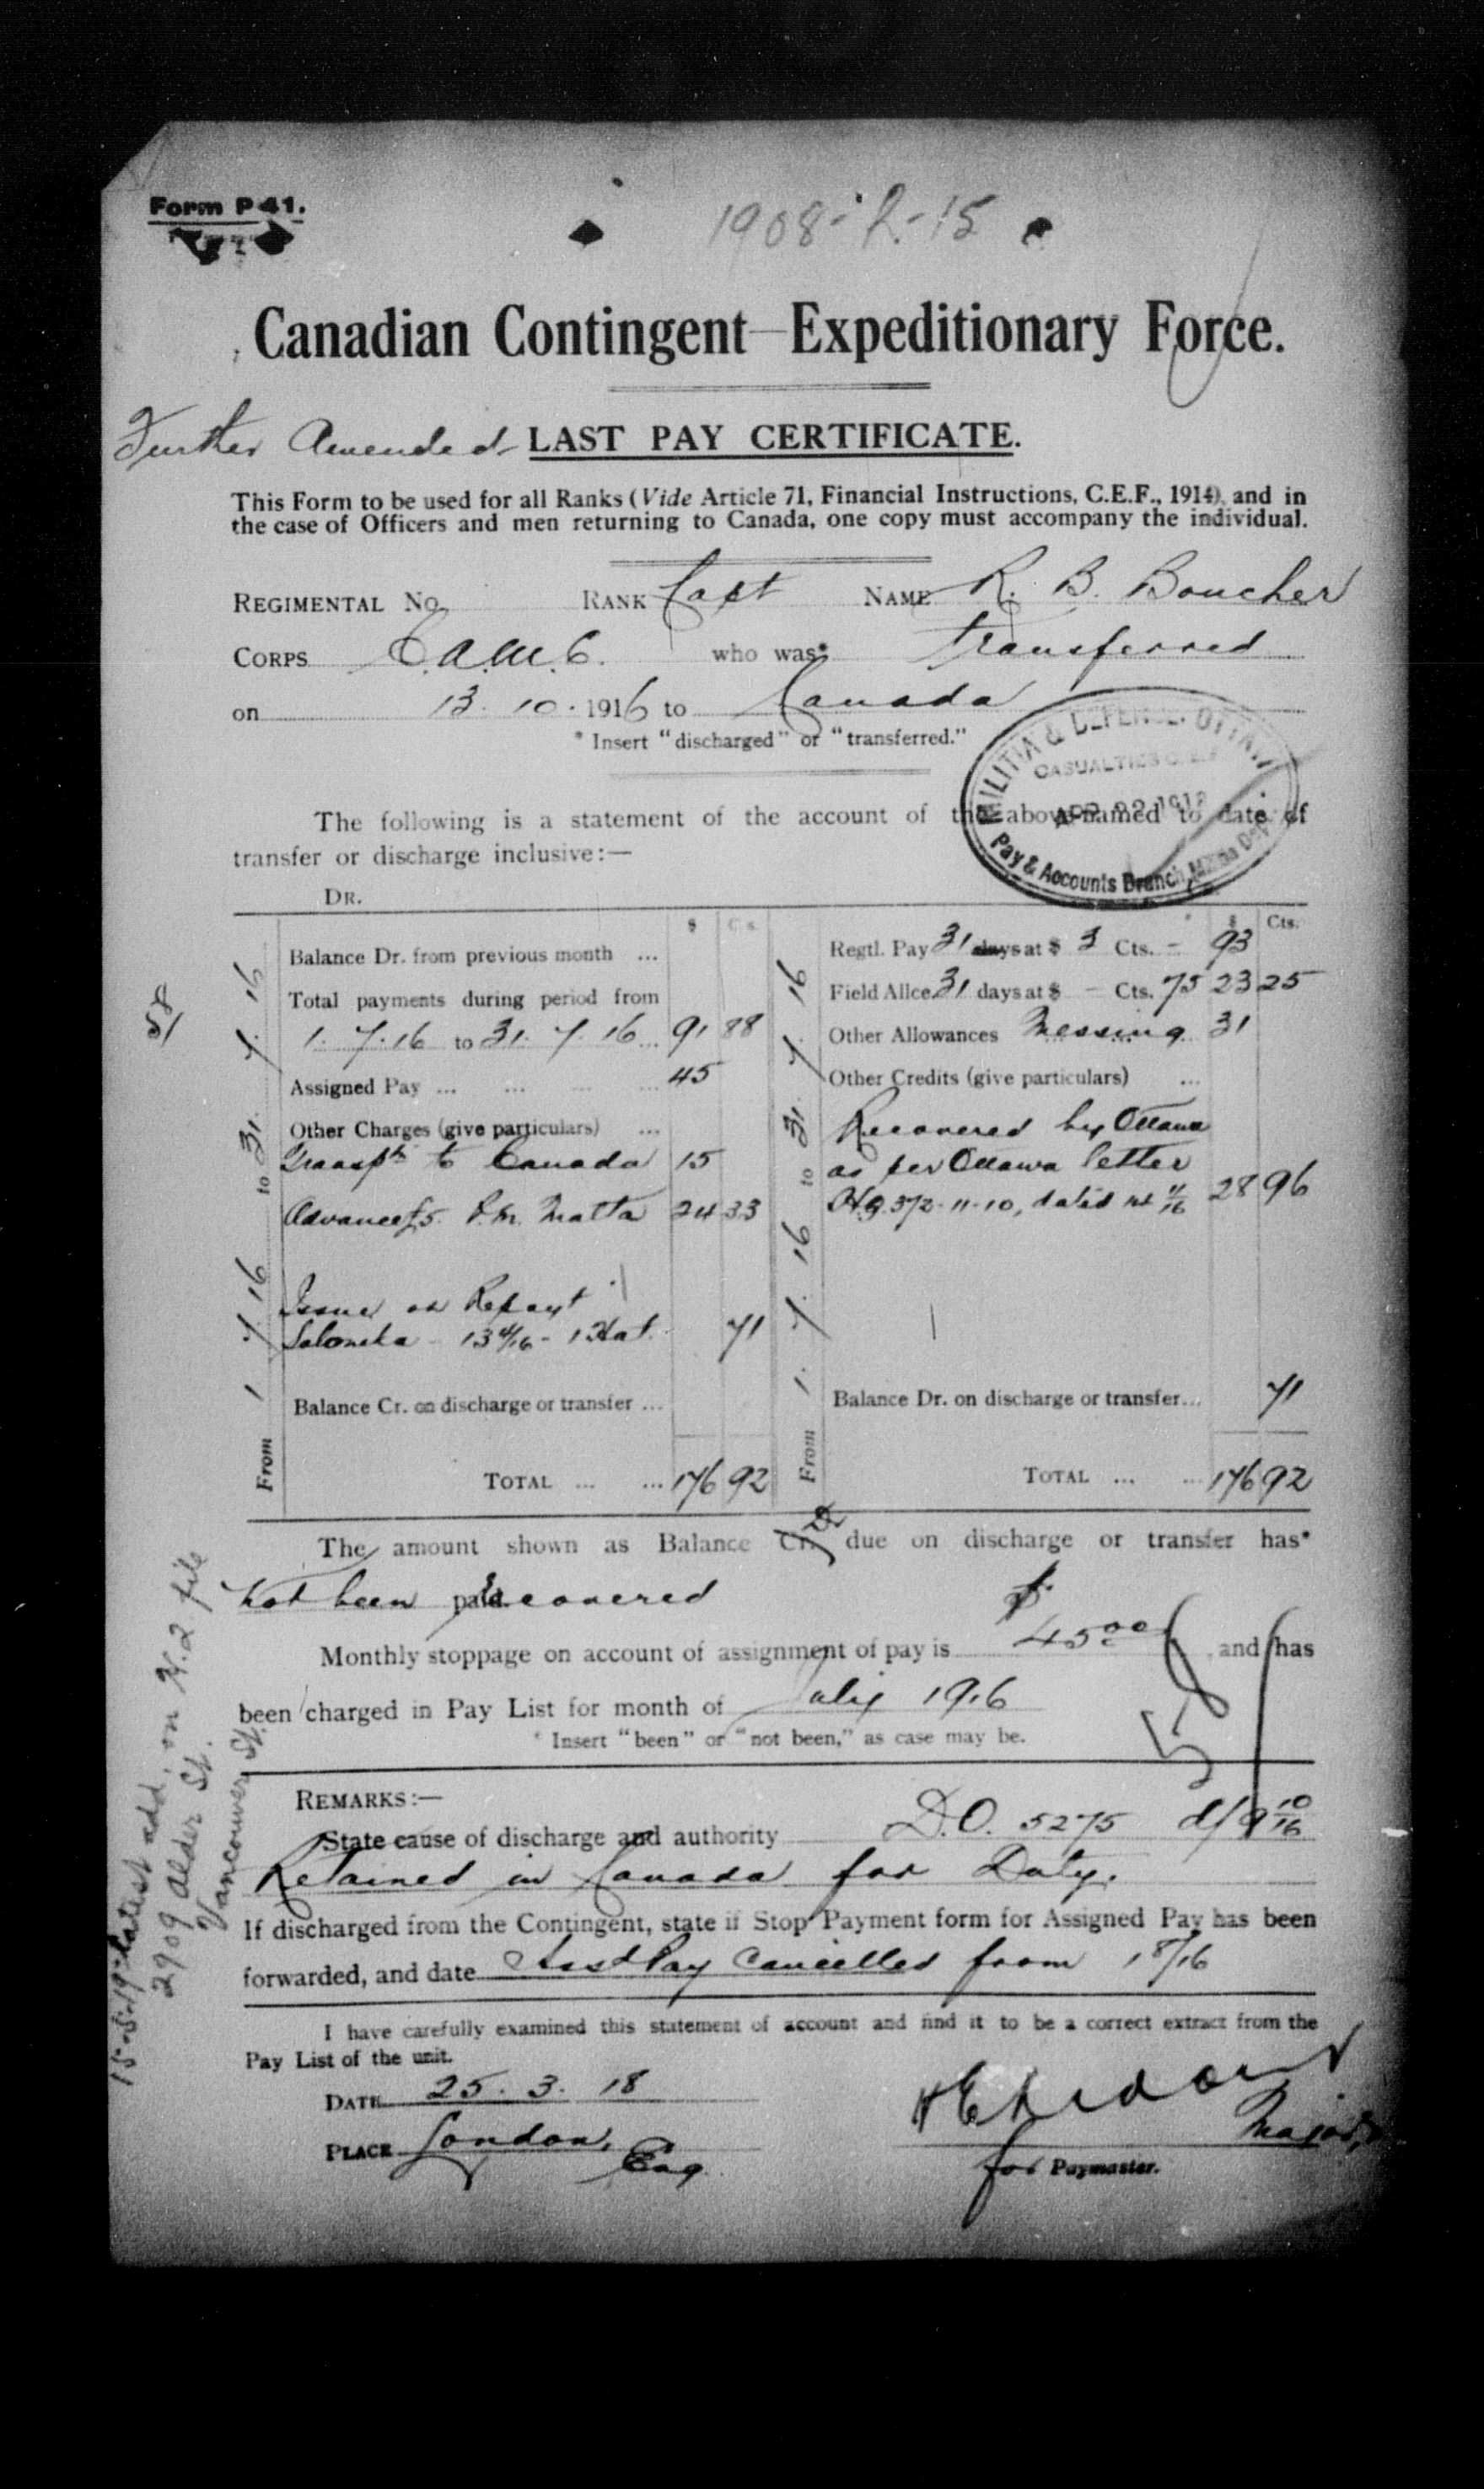 Form P 41.
1908-R-15
Canadian Contingent Expeditionary Force.
Further Amended LAST PAY CERTIFICATE.
This Form to be used for all Ranks (Vide Article 71, Financial Instructions, C.E.F., 1914), and in
the case of Officers and men returning to Canada, one copy must accompany the individual.
REGIMENTAL No. RANK Capt NAME R. B. Boucher
CORPS C.A.M.C. who was* transferred
on 13. 10. 1916 to Canada
* Insert "discharged" or "transferred."
MILITIA & DEFENCE, OTTAWA
CASUALTIES C.E.F.
APR 22 1918
Pay & Accounts Branch, Militia Dep.
The following is a statement of the account of the above named to date of
transfer or discharge inclusive:—
DR.
$ Cts.
From 1. 7. 16 to 31. 7. 16
Balance Dr. from previous month ...
Total payments during period from
1. 7. 16 to 31. 7. 16 ... 91 88
Assigned Pay ... ... ... ... 45
Other Charges (give particulars) ...
Transpt to Canada 15
Advance £5. P.M. Malta 24 33
Issue on Repayt
Salonika - 13 4/16 - 1 Hat. 71
Balance Cr. on discharge or transfer ...
TOTAL ... ... 176 92
$ Cts.
From 1. 7. 16 to 31. 7. 16
Regtl. Pay 31 days at $ 3 Cts. - 93
Field Allce. 31 days at $ - Cts. 75 23 25
Other Allowances Messing 31
Other Credits (give particulars) ...
Recovered by Ottawa
as per Ottawa letter
HQ 372-11-10, dated 11/16 28 96
Balance Dr. on discharge or transfer... 71
TOTAL ... ... 176 92
58
The amount shown as Balance Cr. Dr due on discharge or transfer has*
not been paid. recovered
Monthly stoppage on account of assignment of pay is $ 45.00 and has
been charged in Pay List for month of July 1916
* Insert "been" or "not been," as case may be.
58
REMARKS:—
State cause of discharge and authority D.O. 5275 d/9 10/16
Retained in Canada for Duty.
If discharged from the Contingent, state if Stop Payment form for Assigned Pay has been
forwarded, and date Assd Pay Cancelled from 1 8/16
I have carefully examined this statement of account and find it to be a correct extract from the
Pay List of the unit.
DATE 25. 3. 18
PLACE London, Eng.
Major,
for Paymaster.
15-5-19 Latest add, on H.2 file
2909 Alder St.
Vancouver St.